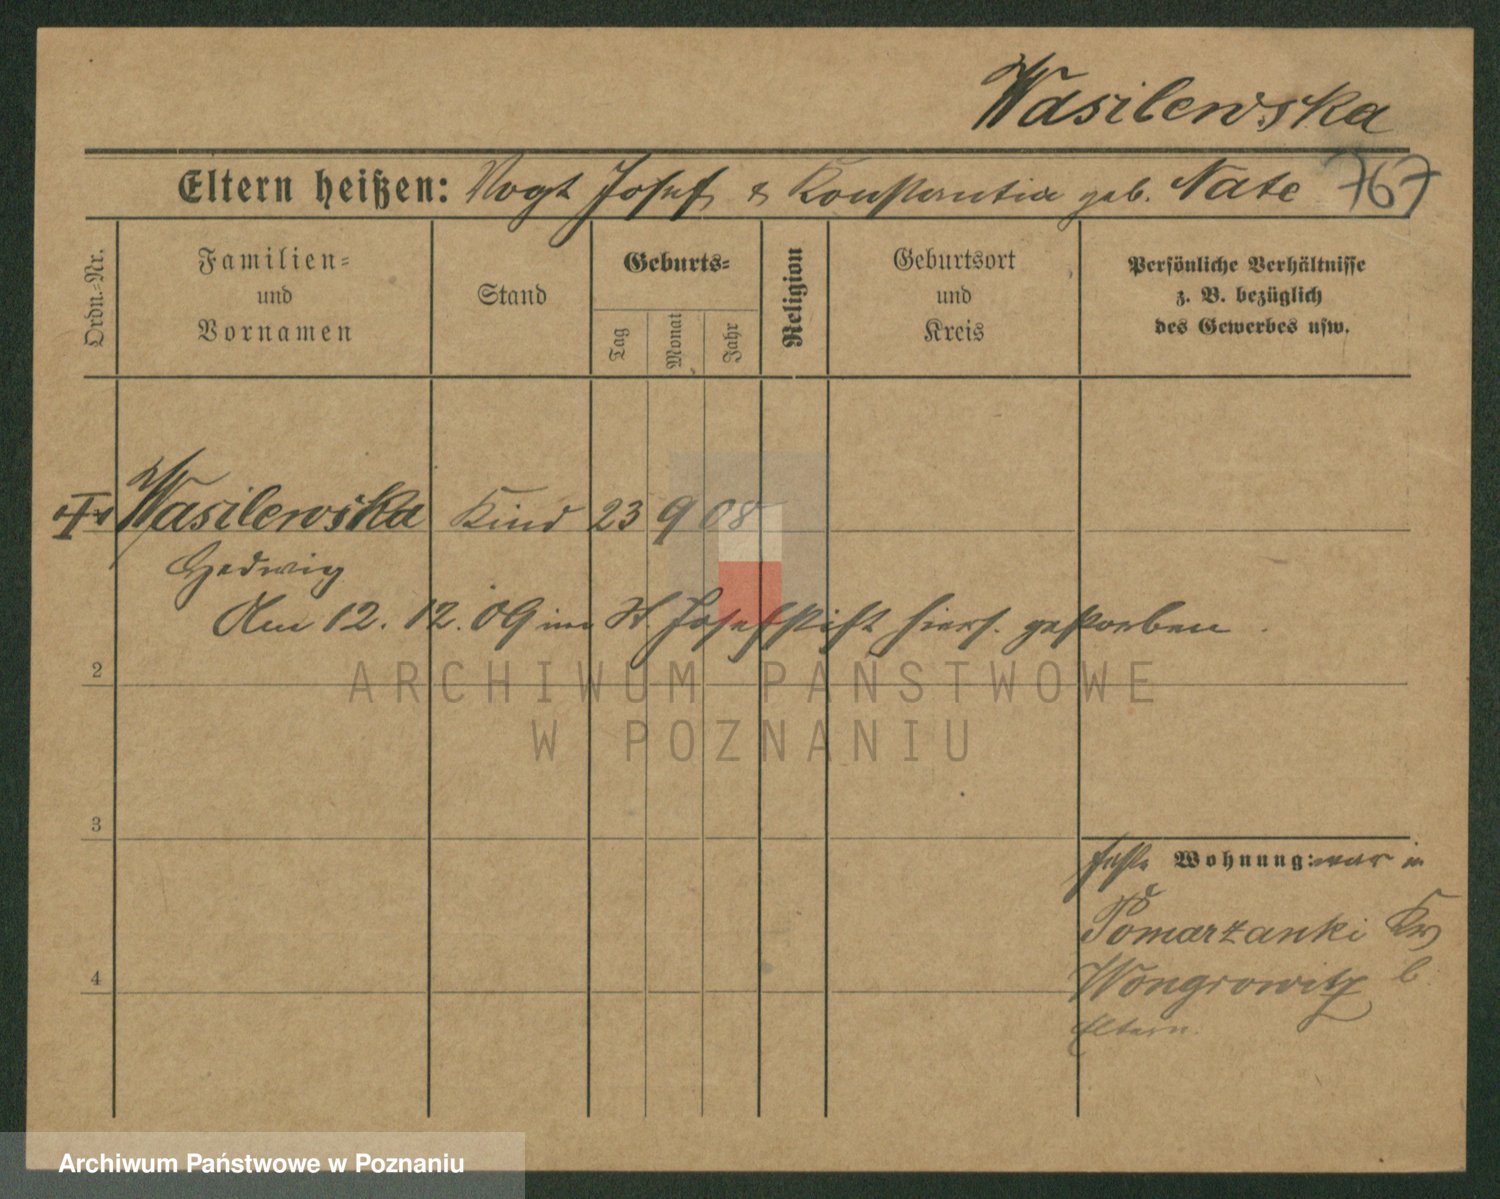 Wasilewska
Eltern heißen: Vogt Josef & Konstantia geb. Nate 767
Ordn.-Nr.
Familien-
und
Vornamen
Stand
Geburts-
Tag
Monat
Jahr
Religion
Geburtsort
und
Kreis
Persönliche Verhältnisse
z. B. bezüglich
des Gewerbes usw.
Wasilewska Kind 23 9 08
Hedwig
Am 12. 12. 09 im St. Josefstift hiers. gestorben.
2
ARCHIWUM PAŃSTWOWE
W POZNANIU
3
Wohnung: war in
Pomarzanki Kr
Wongrowitz b.
Eltern.
4
Archiwum Państwowe w Poznaniu